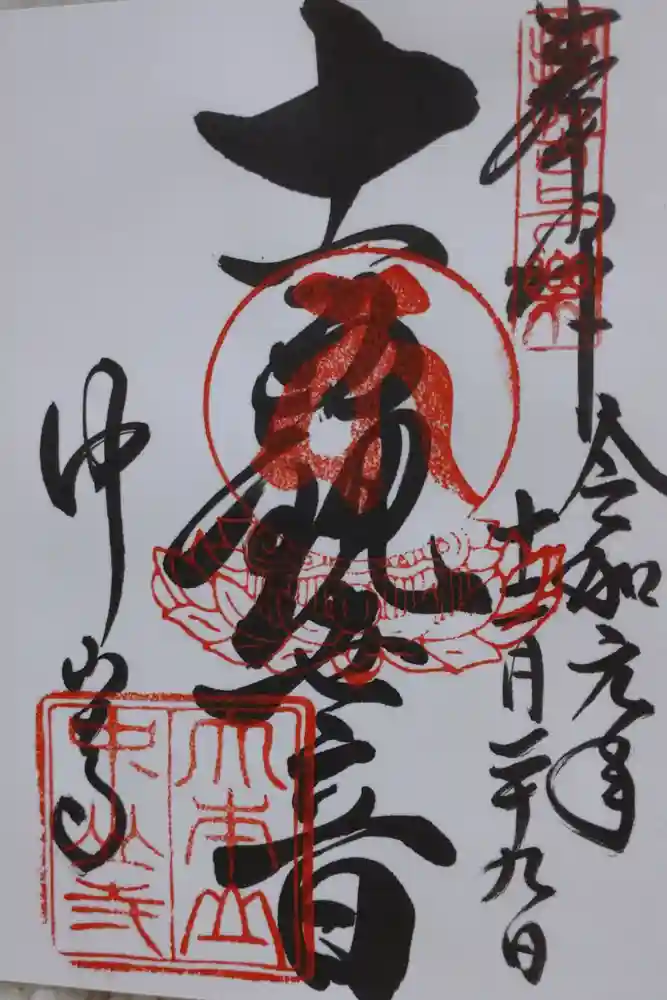 奉拝
令和元年
十二月二十九日
十一面観世音
中山寺
大本山
中山寺